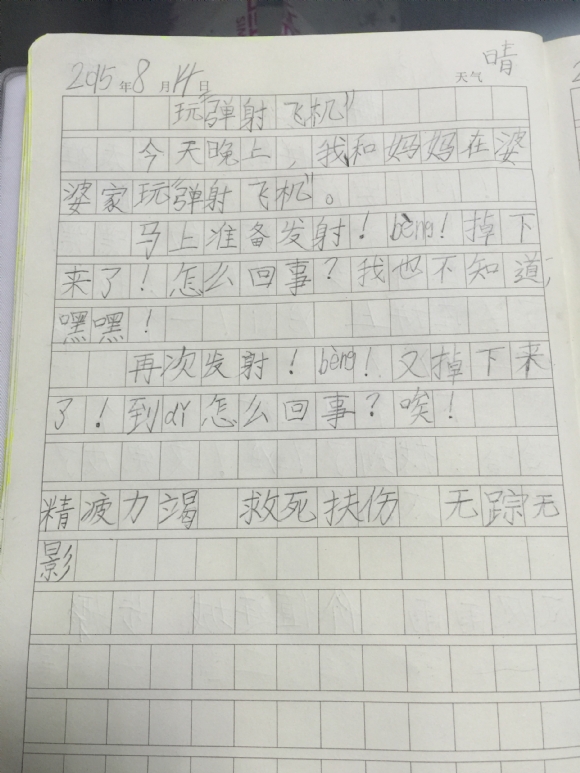 2015年8月14日 天气 晴
玩“弹射飞机”
今天晚上，我和妈妈在婆
婆家玩“弹射飞机”。
马上准备发射！bèng！掉下
来了！怎么回事？我也不知道，
嘿嘿！
再次发射！bèng！又掉下来
了！到dǐ怎么回事？唉！
精疲力竭 救死扶伤 无踪无
影